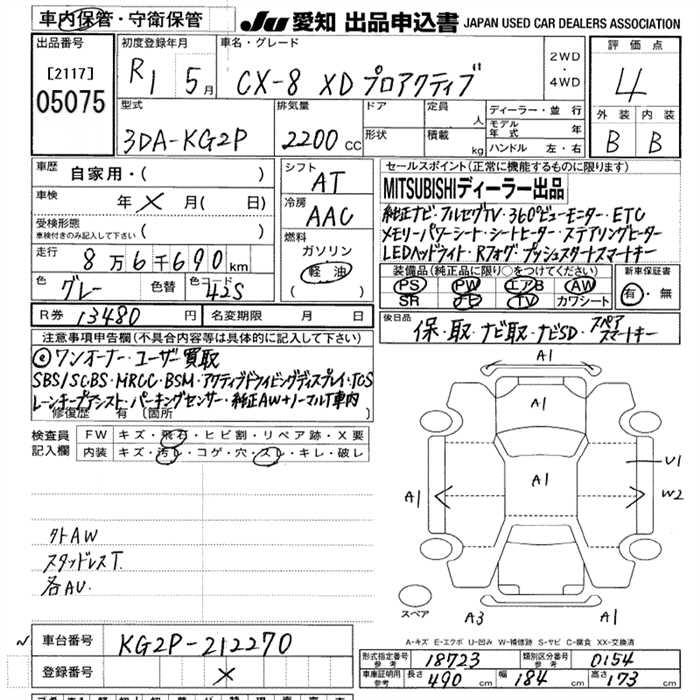 車内保管・守衛保管
JU 愛知 出品申込書 JAPAN USED CAR DEALERS ASSOCIATION
出品番号
[2117]
05075
初度登録年月
R1 5月
車名・グレード
CX-8 XD プロアクティブ
2WD
・
4WD
評価点
4
外装 内装
B B
型式
3DA-KG2P
排気量
2200 CC
ドア
形状
定員 人
積載 kg
ディーラー・並行
モデル年式 年
ハンドル 左・右
車歴
自家用・( )
車検 年 × 月( 日)
受検形態
車検付きのみ記入して下さい ( )
走行 8万6千690km
色 グレー 色替 色コード 42S
シフト
AT
冷房
AAC
燃料
ガソリン
軽油
( )
セールスポイント(正常に機能するものに限ります)
MITSUBISHIディーラー出品
純正ナビ・フルセグTV・360°ビューモニター・ETC
メモリーパワーシート・シートヒーター・ステアリングヒーター
LEDヘッドライト・Rフォグ・プッシュスタートスマートキー
装備品(純正品に限り○をつけてください)
PS PW エアB AW
SR ナビ TV カワシート
新車保証書
有・無
R券 13480 円 名変期限 月 日
後日品 保・取・ナビ取・ナビSD・スペアスマートキー
注意事項申告欄(不具合内容等は具体的に記入して下さい)
ワンオーナー・ユーザー買取
SBS/SCBS・MRCC・BSM・アクティブドライビングディスプレイ・TCS
レーンキープアシスト・パーキングセンサー・純正AW+ノーマルT車内
修復歴 有 〔箇所 〕
検査員
記入欄
FW キズ・飛石・ヒビ割・リペア跡・X要
内装 キズ・汚レ・コゲ・穴・スレ・キレ・破レ
外AW
スタッドレスT.
各AU.
A1
A1
A1
A1
A1
U1
W2
スペア
A3
A1
A-キズ E-エクボ U-凹み W-補修跡 S-サビ C-腐食 XX-交換済
車台番号 KG2P-212270
登録番号 ×
形式指定番号 参考 18723 類別区分番号 参考 0154
車庫証明用 参考 長さ 490 cm 幅 184 cm 高さ 173 cm